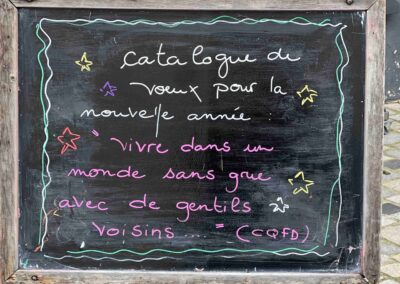 catalogue de
voeux pour la
nouvelle année :
"vivre dans un
monde sans grue
avec de gentils
voisins ...." (CQFD)